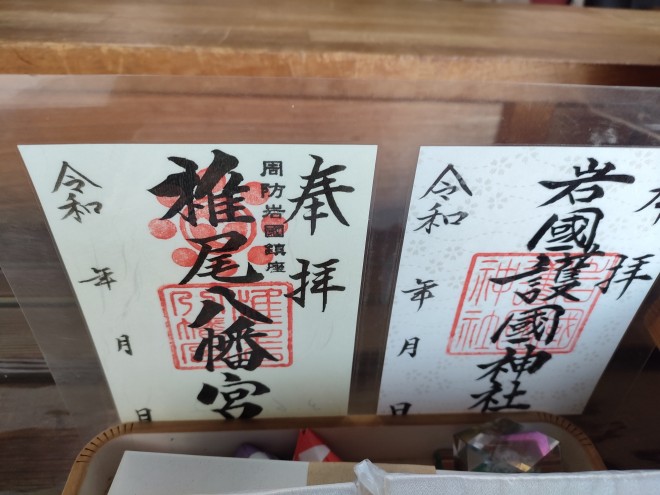 奉拝
周防岩國鎮座
椎尾八幡宮
令和
年
月
日
拝
岩國護國神社
令和
年
月
日